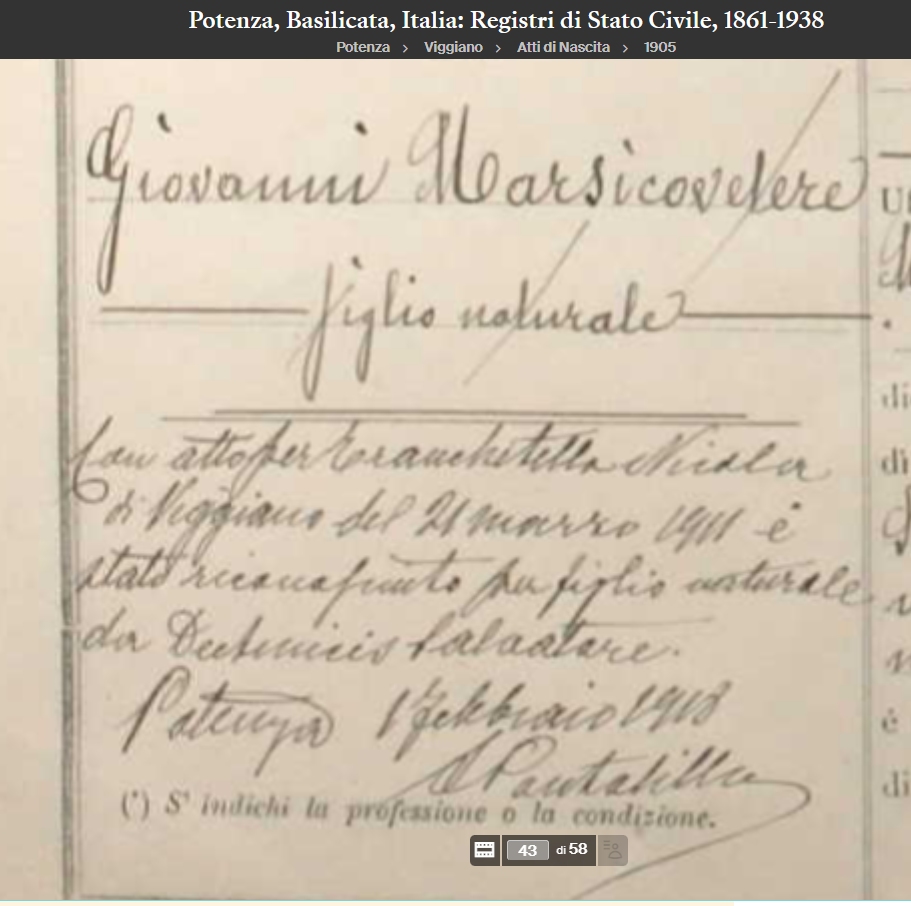 Potenza, Basilicata, Italia: Registri di Stato Civile, 1861-1938
Potenza > Viggiano > Atti di Nascita > 1905
Giovanni Marsicovetere
figlio naturale
Con atto per Nicola
di Viggiano del 21 marzo 1911 è
stato riconosciuto per figlio naturale
da Salvatore.
Potenza 1° febbraio 1918
(*) S' indichi la professione o la condizione.
43 di 58